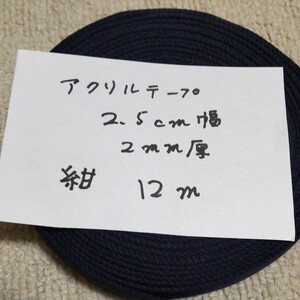 アクリルテープ
2.5cm幅
2mm厚
紺 12m